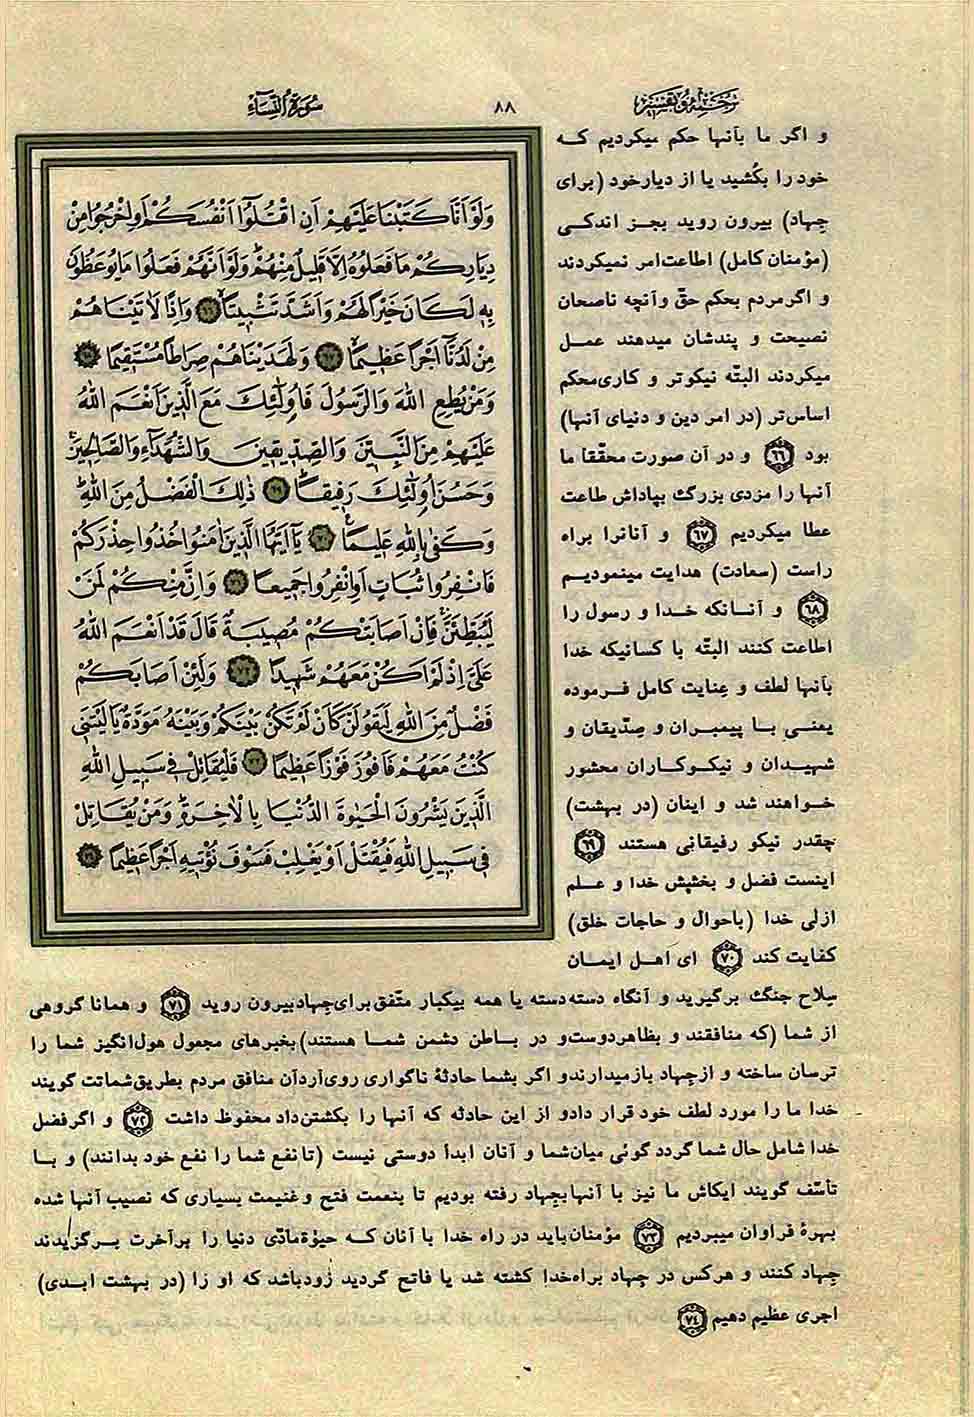 ترجمه و تفسیر
۸۸
سورة النساء
و اگر ما بآنها حکم میکردیم که
خود را بکُشید یا از دیار خود (برای
جهاد) بیرون روید بجز اندکی
(مؤمنان کامل) اطاعت امر نمیکردند
و اگر مردم بحکم حقّ و آنچه ناصحان
نصیحت و پندشان میدهند عمل
میکردند البتّه نیکوتر و کاری محکم
اساس‌تر (در امر دین و دنیای آنها)
بود ۶۶ و در آن صورت محقّقا ما
آنها را مزدی بزرگ بپاداش طاعت
عطا میکردیم ۶۷ و آنانرا براه
راست (سعادت) هدایت مینمودیم
۶۸ و آنانکه خدا و رسول را
اطاعت کنند البتّه با کسانیکه خدا
بآنها لطف و عنایت کامل فرموده
یعنی با پیمبران و صدّیقان و
شهیدان و نیکوکاران محشور
خواهند شد و اینان (در بهشت)
چقدر نیکو رفیقانی هستند ۶۹
اینست فضل و بخشش خدا و علم
ازلی خدا (باحوال و حاجات خلق)
کفایت کند ۷۰ ای اهل ایمان
سلاح جنگ برگیرید و آنگاه دسته دسته یا همه بیکبار متّفق برای جهاد بیرون روید ۷۱ و همانا گروهی
از شما (که منافقند و بظاهر دوست و در باطن دشمن شما هستند) بخبرهای مجعول هول‌انگیز شما را
ترسان ساخته و از جهاد باز میدارند و اگر بشما حادثهٔ ناگواری روی آرد آن منافق مردم بطریق شماتت گویند
خدا ما را مورد لطف خود قرار داد و از این حادثه که آنها را بکشتن داد محفوظ داشت ۷۲ و اگر فضل
خدا شامل حال شما گردد گوئی میان شما و آنان ابداً دوستی نیست (تا نفع شما را نفع خود بدانند) و با
تأسّف گویند ایکاش ما نیز با آنها بجهاد رفته بودیم تا بنعمت فتح و غنیمت بسیاری که نصیب آنها شده
بهرهٔ فراوان میبردیم ۷۳ مؤمنان باید در راه خدا با آنان که حیوة مادّی دنیا را بر آخرت برگزیدند
جهاد کنند و هرکس در جهاد براه خدا کشته شد یا فاتح گردید زود باشد که او را (در بهشت ابدی)
اجری عظیم دهیم ۷۴
وَلَوْ أَنَّا كَتَبْنَا عَلَيْهِمْ أَنِ اقْتُلُوا أَنْفُسَكُمْ أَوِ اخْرُجُوا مِنْ
دِيَارِكُمْ مَا فَعَلُوهُ إِلَّا قَلِيلٌ مِنْهُمْ وَلَوْ أَنَّهُمْ فَعَلُوا مَا يُوعَظُونَ
بِهِ لَكَانَ خَيْرًا لَهُمْ وَأَشَدَّ تَثْبِيتًا ۶۶ وَإِذًا لَآتَيْنَاهُمْ
مِنْ لَدُنَّا أَجْرًا عَظِيمًا ۶۷ وَلَهَدَيْنَاهُمْ صِرَاطًا مُسْتَقِيمًا ۶۸
وَمَنْ يُطِعِ اللهَ وَالرَّسُولَ فَأُولٰئِكَ مَعَ الَّذِينَ أَنْعَمَ اللهُ
عَلَيْهِمْ مِنَ النَّبِيِّينَ وَالصِّدِّيقِينَ وَالشُّهَدَاءِ وَالصَّالِحِينَ
وَحَسُنَ أُولٰئِكَ رَفِيقًا ۶۹ ذٰلِكَ الْفَضْلُ مِنَ اللهِ
وَكَفٰى بِاللهِ عَلِيمًا ۷۰ يَا أَيُّهَا الَّذِينَ آمَنُوا خُذُوا حِذْرَكُمْ
فَانْفِرُوا ثُبَاتٍ أَوِ انْفِرُوا جَمِيعًا ۷۱ وَإِنَّ مِنْكُمْ لَمَنْ
لَيُبَطِّئَنَّ فَإِنْ أَصَابَتْكُمْ مُصِيبَةٌ قَالَ قَدْ أَنْعَمَ اللهُ
عَلَيَّ إِذْ لَمْ أَكُنْ مَعَهُمْ شَهِيدًا ۷۲ وَلَئِنْ أَصَابَكُمْ
فَضْلٌ مِنَ اللهِ لَيَقُولَنَّ كَأَنْ لَمْ تَكُنْ بَيْنَكُمْ وَبَيْنَهُ مَوَدَّةٌ يَا لَيْتَنِي
كُنْتُ مَعَهُمْ فَأَفُوزَ فَوْزًا عَظِيمًا ۷۳ فَلْيُقَاتِلْ فِي سَبِيلِ اللهِ
الَّذِينَ يَشْرُونَ الْحَيٰوةَ الدُّنْيَا بِالْآخِرَةِ وَمَنْ يُقَاتِلْ
فِي سَبِيلِ اللهِ فَيُقْتَلْ أَوْ يَغْلِبْ فَسَوْفَ نُؤْتِيهِ أَجْرًا عَظِيمًا ۷۴